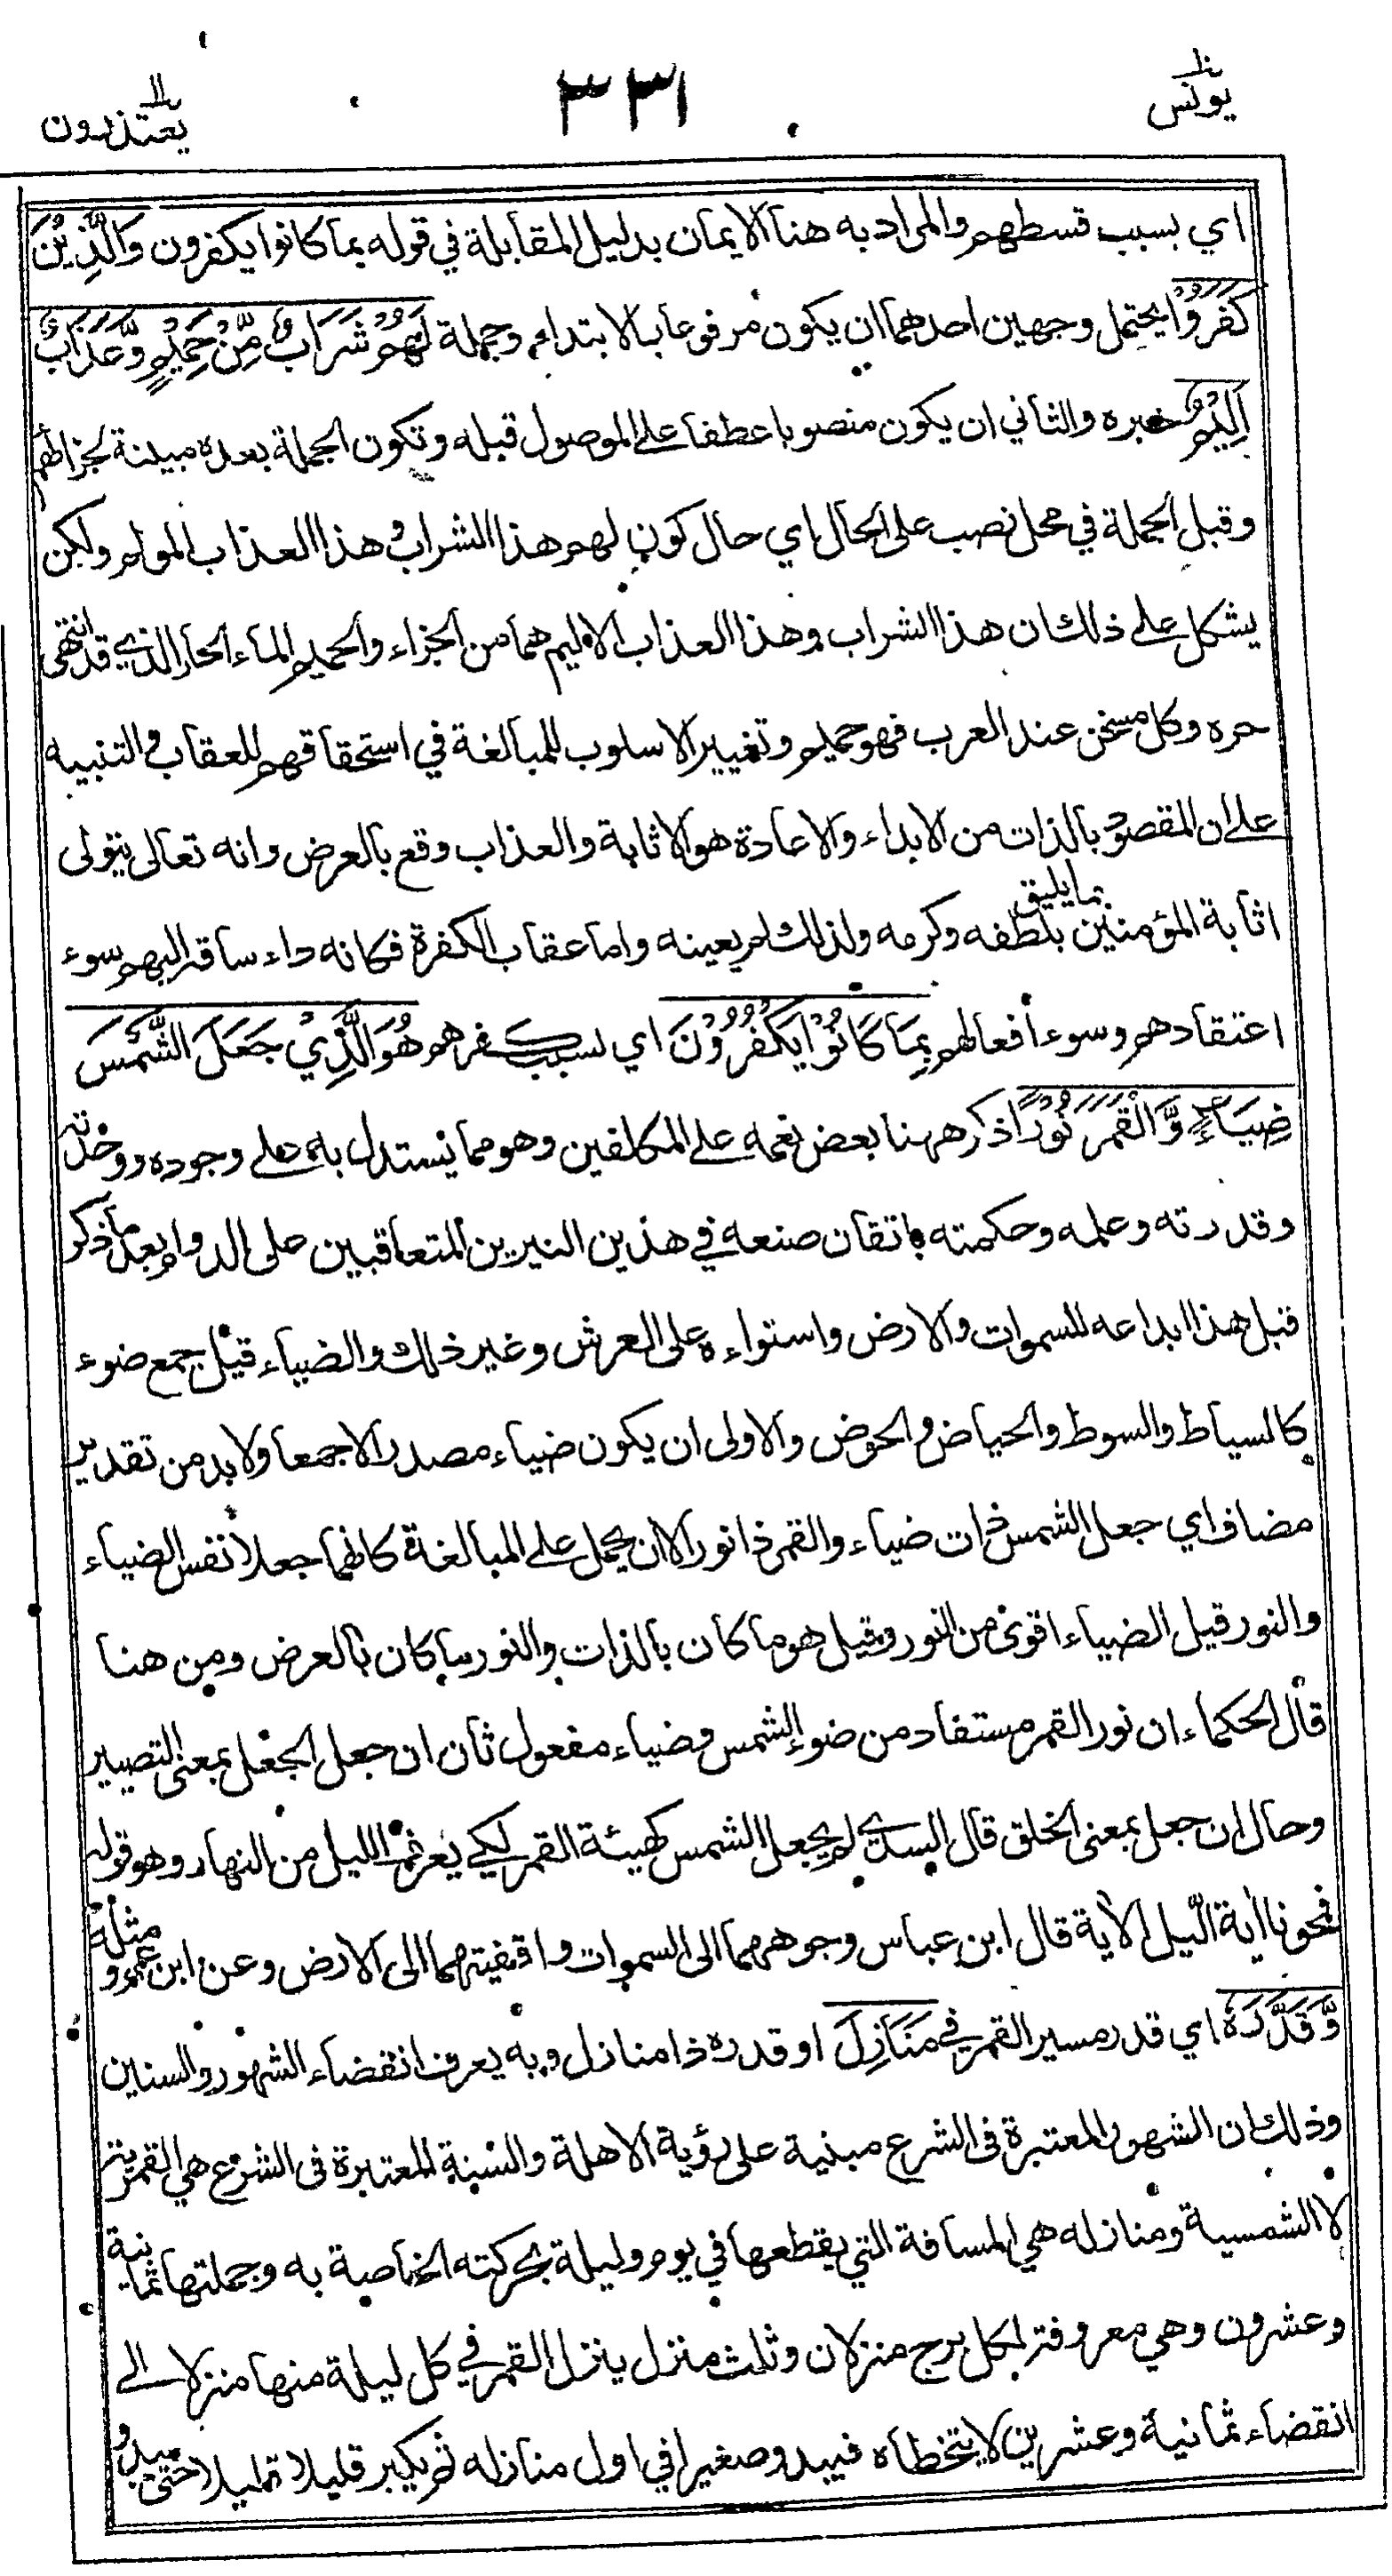 يونس ١٠
٣٣١
يعتذرون ١١
اي بسبب قسطهم والمراد به هنا الايمان بدليل المقابلة في قوله بما كانوا يكفرون وَالَّذِيْنَ
كَفَرُوْا يحتمل وجهين احدهما ان يكون مرفوعا بالابتداء وجملة لَهُمْ شَرَابٌ مِّنْ حَمِيْمٍ وَّعَذَابٌ
اَلِيْمٌ خبره والثاني ان يكون منصوبا عطفا على الموصول قبله وتكون الجملة بعده مبينة لجزائهم
وقيل الجملة في محل نصب على الحال اي حال كون لهم هذا الشراب وهذا العذاب المولم ولكن
يشكل على ذلك ان هذا الشراب وهذا العذاب الاليم هما من الجزاء والحميم الماء الحار الذي قد انتهى
حره وكل مسخن عند العرب فهو حميم وتغيير الاسلوب للمبالغة في استحقاقهم للعقاب والتنبيه
على ان المقصود بالذات من الابداء والاعادة هو الاثابة والعذاب وقع بالعرض وانه تعالى يتولى
اثابة المؤمنين بما يليق بلطفه وكرمه ولذلك لم يعينه واما عقاب الكفرة فكانه داء ساقه اليهم سوء
اعتقادهم وسوء افعالهم بِمَا كَانُوْا يَكْفُرُوْنَ اي بسبب كفرهم هُوَ الَّذِيْ جَعَلَ الشَّمْسَ
ضِيَاءً وَّالْقَمَرَ نُوْرًا ذكر ههنا بعض نعمه على المكلفين وهو مما يستدل به على وجوده ووحدته
وقدرته وعلمه وحكمته باتقان صنعه في هذين النيرين المتعاقبين على الدوام بعد ما ذكر
قبل هذا ابداعه للسموات والارض واستواءه على العرش وغير ذلك والضياء قيل جمع ضوء
كالسياط والسوط والحياض والحوض والاولى ان يكون ضياء مصدرا لا جمعا ولا بد من تقدير
مضاف اي جعل الشمس ذات ضياء والقمر ذا نور الا ان يحمل على المبالغة كانهما جعلا نفس الضياء
والنور قيل الضياء اقوى من النور وقيل هو ما كان بالذات والنور ما كان بالعرض ومن هنا
قال الحكماء ان نور القمر مستفاد من ضوء الشمس وضياء مفعول ثان ان جعل الجعل بمعنى التصيير
وحال ان جعل بمعنى الخلق قال السدي لم يجعل الشمس كهيئة القمر لكي يعرف الليل من النهار وهو قوله
فمحونا اية الليل الاية قال ابن عباس وجوههما الى السموات واقفيتهما الى الارض وعن ابن عمرو مثله
وَّقَدَّرَهٗ اي قدر مسير القمر في مَنَازِلَ او قدره ذا منازل وبه يعرف انقضاء الشهور والسنين
وذلك ان الشهور المعتبرة فى الشرع مبنية على رؤية الاهلة والسنة المعتبرة فى الشرع هي القمرية
لا الشمسية ومنازله هي المسافة التي يقطعها في يوم وليلة بحركته الخاصة به وجملتها ثمانية
وعشرون وهي معروفة لكل برج منزلان وثلث منزل ينزل القمر في كل ليلة منها منزلا الى
انقضاء ثمانية وعشرين لا يتخطاه فيبدو صغيرا في اول منازله ثم يكبر قليلا قليلا حتى يبدو